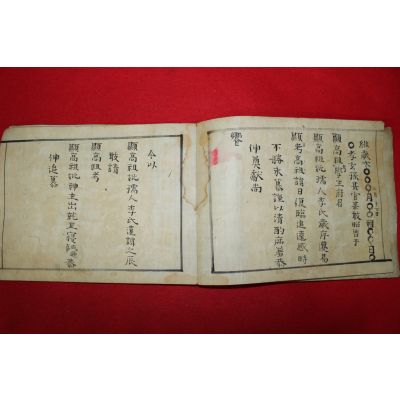 維歲次〇〇〇月〇〇朔〇〇日〇
〇孝玄孫某官某敢昭告于
顯高祖考學生府君
顯高祖妣孺人李氏歲序遷易
顯考高祖諱日復臨追遠感時
不勝永慕謹以清酌庶羞恭
伸奠獻尚
饗
今以
顯高祖妣孺人李氏遠諱之辰
敢請
顯高祖考
顯高祖妣神主出就正寢恭
伸追慕